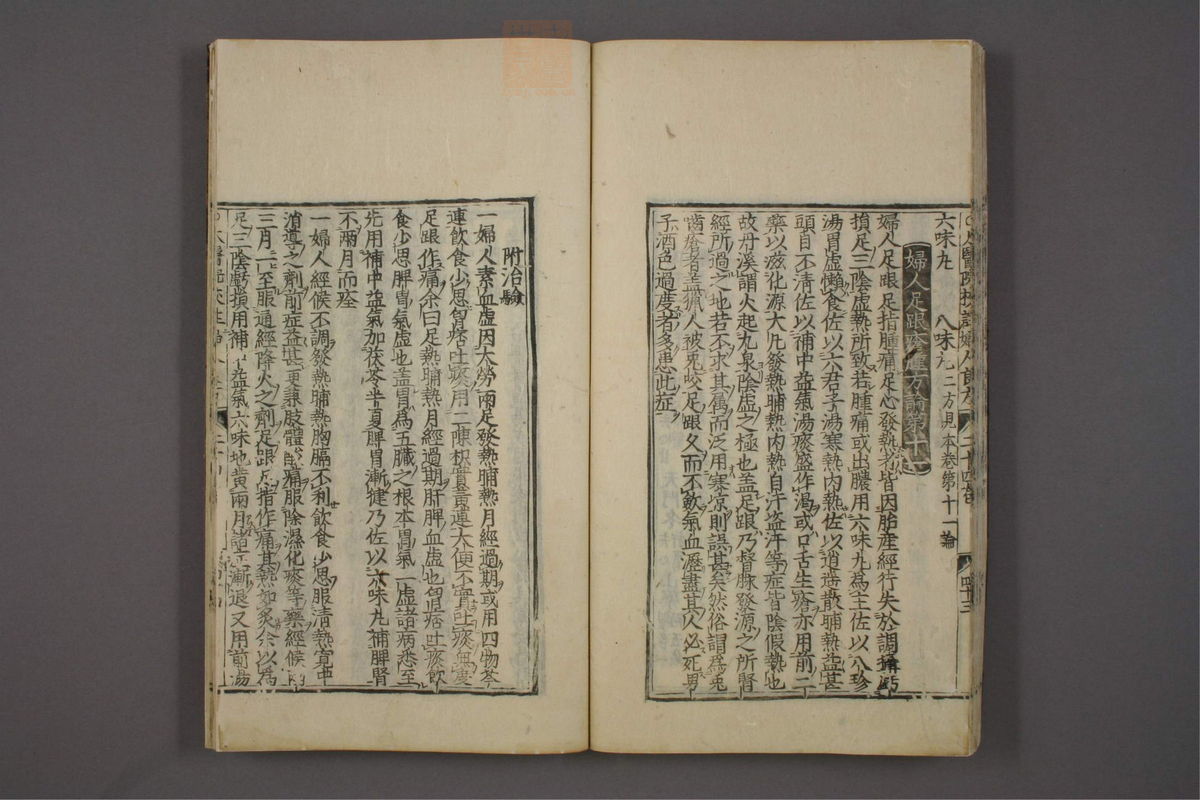 六味丸　八味丸二方見本卷第十一論
婦人足跟瘡腫方論第十一
婦人足跟足指腫痛足心發熱者皆因胎產經行失於調攝虧
損足三陰虛熱所致若腫痛或出膿用六味丸爲主佐以八珍
湯胃虛懶食佐以六君子湯寒熱內熱佐以逍遙散晡熱益甚
頭目不清佐以補中益氣湯痰盛作渴或口舌生瘡亦用前二
藥以滋化源大凡發熱晡熱內熱自汗盜汗等症皆陰假熱也
故丹溪謂火起九泉陰虛之極也盖足跟乃督脉發源之所腎
經所過之地若不求其屬而泛用寒凉則誤甚矣然俗謂爲兎
嚙瘡者盖獵人被兎咬足跟久而不歛氣血瀝盡其人必死男
子酒色過度者多患此症
附治驗
一婦人素血虛因大勞兩足發熱晡熱月經過期或用四物芩
連飲食少思胷痞吐痰用二陳枳實黃連大便不實吐痰無度
足跟作痛余曰足熱晡熱月經過期肝脾血虛也胷痞吐痰飲
食少思脾胃氣虛也盖胃爲五臟之根本胃氣一虛諸病悉至
先用補中益氣加茯苓半夏脾胃漸健乃佐以六味丸補脾腎
不兩月而痊
一婦人經候不調發熱晡熱胸膈不利飲食少思服清熱寬中
消導之劑前症益甚更兼肢體作痛服除濕化痰等藥經候
三月一至服通經降火之劑足跟足指作痛其熱如炙余以爲
足三陰虧損用補中益氣六味地黃兩月諸症漸退又用前湯